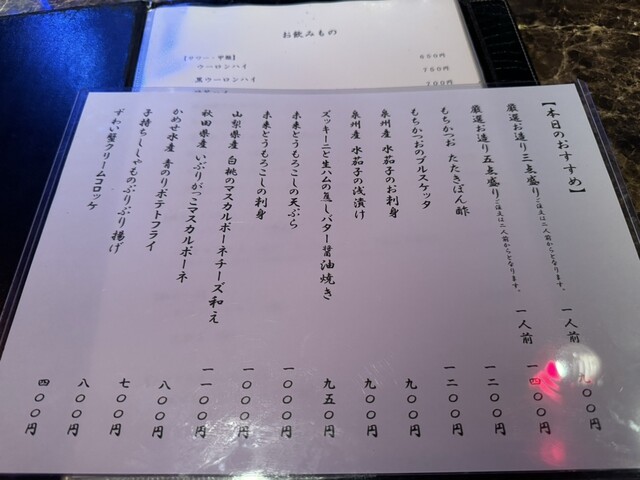 お飲みもの
６５０円
ウーロンハイ
黒ウーロンハイ
７００円
【本日のおすすめ】
厳選お造り三点盛り ご注文は二人前からとなります。 一人前 〇〇円
厳選お造り五点盛り ご注文は二人前からとなります。 一人前 一四〇〇円
もちかつお たたきぽん酢 一二〇〇円
もちかつおのブルスケッタ 一二〇〇円
泉州産 水茄子のお刺身 九〇〇円
泉州産 水茄子の浅漬け 九〇〇円
ズッキーニと生ハムの蒸しバター醤油焼き 九五〇円
未来とうもろこしの天ぷら 一〇〇〇円
未来とうもろこしの刺身 一〇〇〇円
山梨県産 白桃のマスカルポーネチーズ和え 一一〇〇円
秋田県産 いぶりがっこマスカルポーネ 八〇〇円
かめせ水産 青のりポテトフライ 七〇〇円
子持ちししゃものぷりぷり揚げ 八〇〇円
ずわい蟹クリームコロッケ 四〇〇円